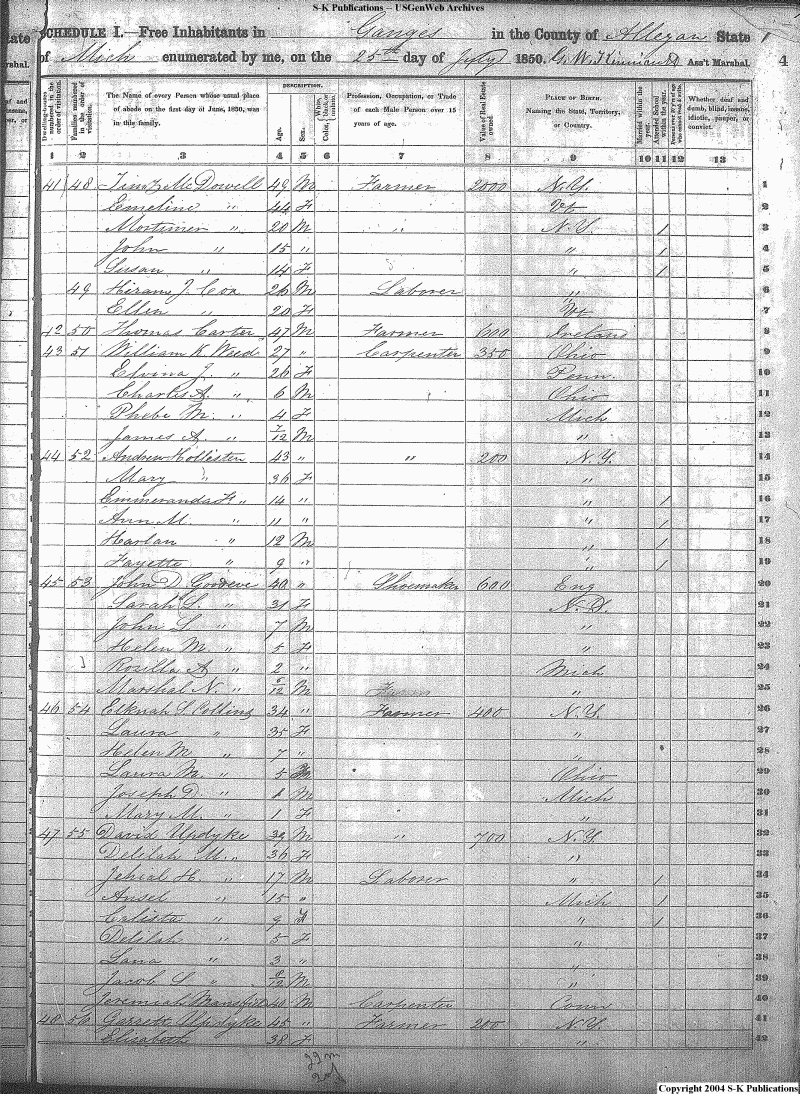 S-K Publications -- USGenWeb Archives
SCHEDULE I.—Free Inhabitants in Ganges in the County of Allegan State
of Mich enumerated by me, on the 25th day of July 1850. G. W. Ass't Marshal. 4
tate
arshal.
Dwelling-houses numbered in the order of visitation.
Families numbered in the order of visitation.
The Name of every Person whose usual place of abode on the first day of June, 1850, was in this family.
DESCRIPTION.
Age.
Sex.
Color, White, black, or mulatto.
Profession, Occupation, or Trade of each Male Person over 15 years of age.
Value of Real Estate owned.
PLACE OF BIRTH.
Naming the State, Territory, or Country.
Married within the year.
Attended School within the year.
Whether deaf and dumb, blind, insane, idiotic, pauper, or convict.
1 2 3 4 5 6 7 8 9 10 11 12 13
41 48 Timy McDowell 49 M Farmer 2000 N.Y. 1
Emeline " 44 F Vt 2
Mortimer " 20 M " N.Y. / 3
John " 15 " " / 4
Susan " 14 F " / 5
49 Hiram J. Cox 26 M Laborer " 6
Ellen " 20 F Vt 7
42 50 Thomas Carter 47 M Farmer 600 Ireland 8
43 51 William K. Weed 27 " Carpenter 350 Ohio 9
Elvina J. " 26 F Penn. 10
Charles A. " 6 M Ohio 11
Phebe M. " 4 F Mich 12
James A. " 7/12 M " 13
44 52 Andrew Hollister 43 " " 200 N.Y. 14
Mary " 36 F " 15
Emmeranda F. " 14 " " / 16
Ann M. " 11 " " / 17
Harlan " 12 M " / 18
Fayette " 9 " " / 19
45 53 John D. Goodeve 40 " Shoemaker 600 Eng 20
Sarah L. " 31 F N.Y. 21
John L. " 7 M " 22
Helen M. " 5 F " 23
Rosilla A " 2 " Mich 24
Marshal N. " 5/12 M " 25
46 54 Elknah S. Collins 34 " Farmer 400 N.Y. 26
Laura " 35 F " 27
Helen M " 7 " " 28
Laura M. " 5 Ohio 29
Joseph D. " M Mich 30
Mary M. " 1 F " 31
47 55 David Updyke 39 M " 700 N.Y. 32
Delilah M. " 36 F " 33
Jehial H. " 17 M Laborer " / 34
Ansel " 15 " Mich / 35
Celista " 9 F " / 36
Delilah " 5 F " 37
Lana " 3 " " 38
Jacob S. " M " 39
Jeremiah Mansfield 40 M Carpenter Conn 40
48 56 Garrett Updyke 45 " Farmer 200 N.Y. 41
Elisabeth 38 F " 42
22 m
20 f
Copyright 2004 S-K Publications